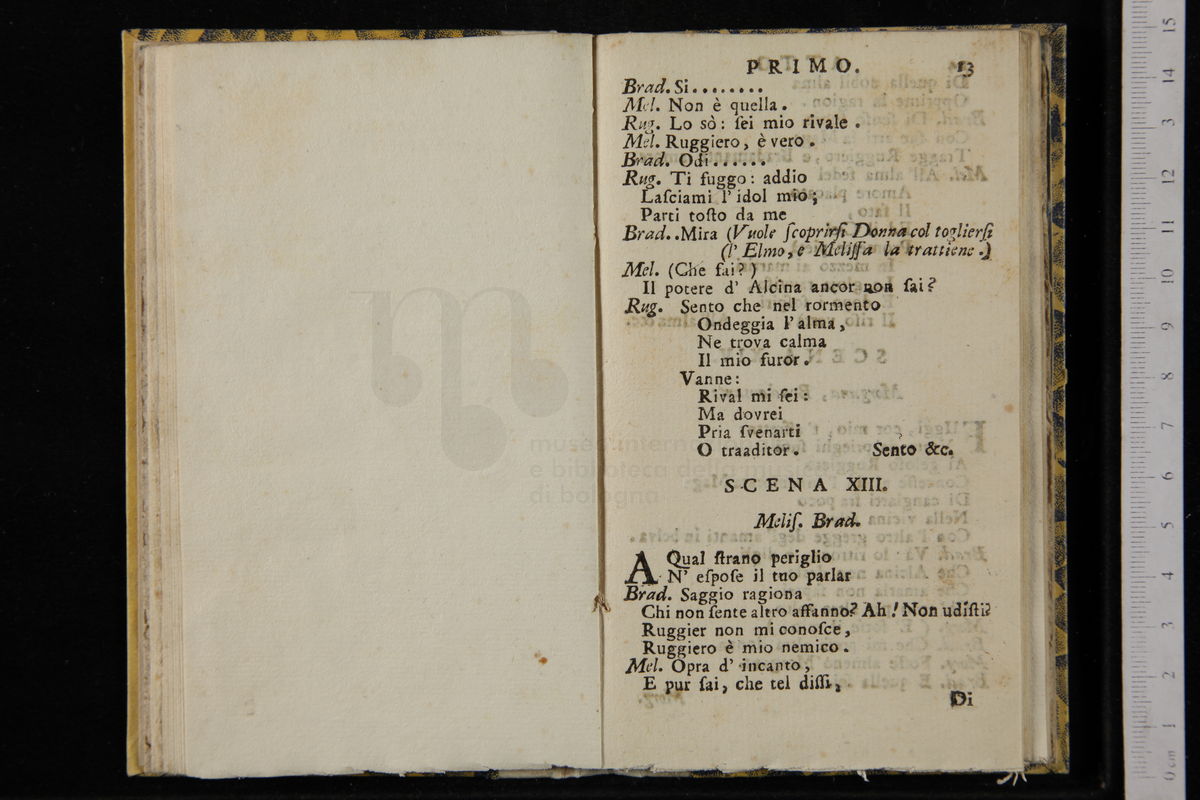 PRIMO. 13
Brad. Si........
Mel. Non è quella.
Rug. Lo sò: ſei mio rivale.
Mel. Ruggiero, è vero.
Brad. Odi......
Rug. Ti fuggo: addio
Laſciami l' idol mio;
Parti toſto da me
Brad. .Mira (Vuole ſcoprirſi Donna col toglierſi
(l' Elmo, e Meliſſa la trattiene.)
Mel. (Che fai?)
Il potere d' Alcina ancor non ſai?
Rug. Sento che nel tormento
Ondeggia l' alma,
Ne trova calma
Il mio furor.
Vanne:
Rival mi ſei:
Ma dovrei
Pria ſvenarti
O traaditor. Sento &c.
SCENA XIII.
Meliſ. Brad.
A Qual ſtrano periglio
N' eſpoſe il tuo parlar
Brad. Saggio ragiona
Chi non ſente altro affanno? Ah! Non udiſti?
Ruggier non mi conoſce,
Ruggiero è mio nemico.
Mel. Opra d' incanto,
E pur ſai, che tel diſſi,
Di
museo internazionale
e biblioteca della musica
di bologna